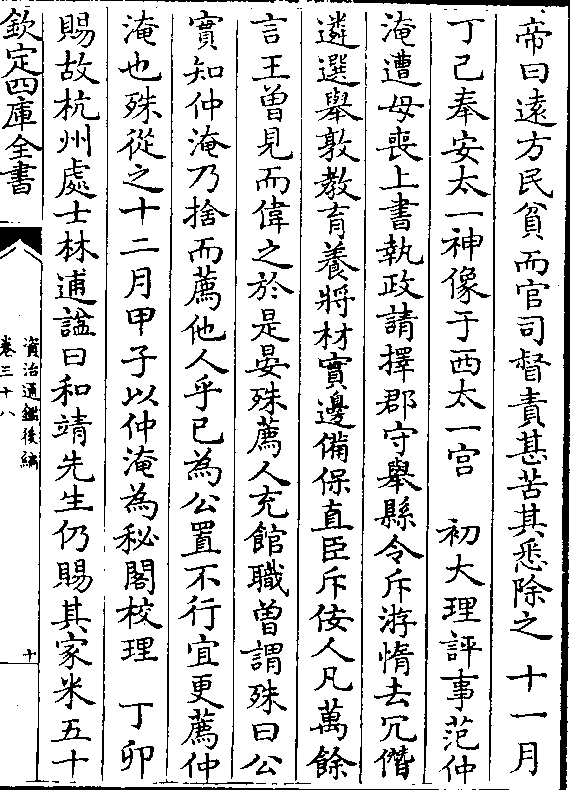 帝曰遠方民貧而官司督責甚苦其悉除之　十一月
丁己奉安太一神像于西太一宫　初大理評事范仲
淹遭母喪上書執政請擇郡守舉縣令斥游惰去冗僭
遴選舉敦教育養將材實邊備保直臣斥佞人凡萬餘
言王曽見而偉之於是晏殊薦人充館職曽謂殊曰公
實知仲淹乃捨而薦他人乎已為公置不行宜更薦仲
淹也殊從之十二月甲子以仲淹為秘閣校理　丁卯
賜故杭州處士林逋諡曰和靖先生仍賜其家米五十
欽定四庫全書
資治通鑑後編
卷三十八
十